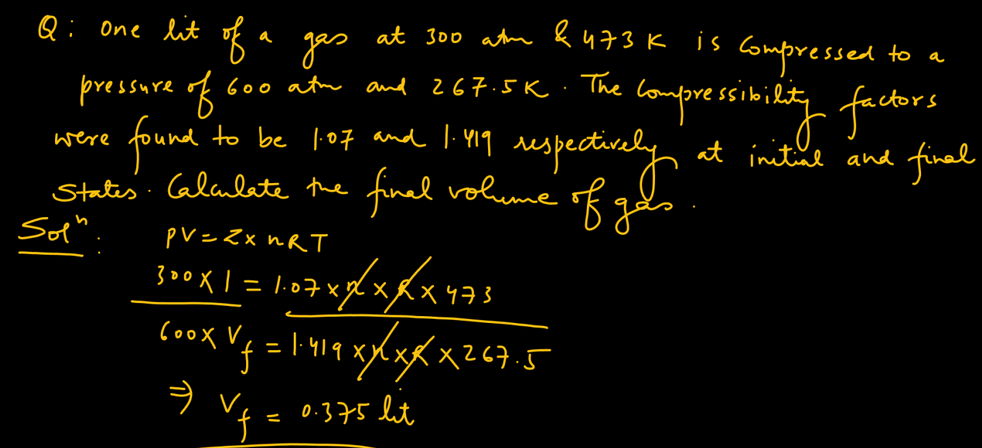 Q: One lit of a gas at 300 atm & 473 K is compressed to a
pressure of 600 atm and 267.5K. The compressibility factors
were found to be 1.07 and 1.419 respectively at initial and final
states. Calculate the final volume of gas.
Solⁿ: PV = Z x nRT
300 X 1 = 1.07 x n x R x 473
600 x Vf = 1.419 x n x R x 267.5
⇒ Vf = 0.375 lit